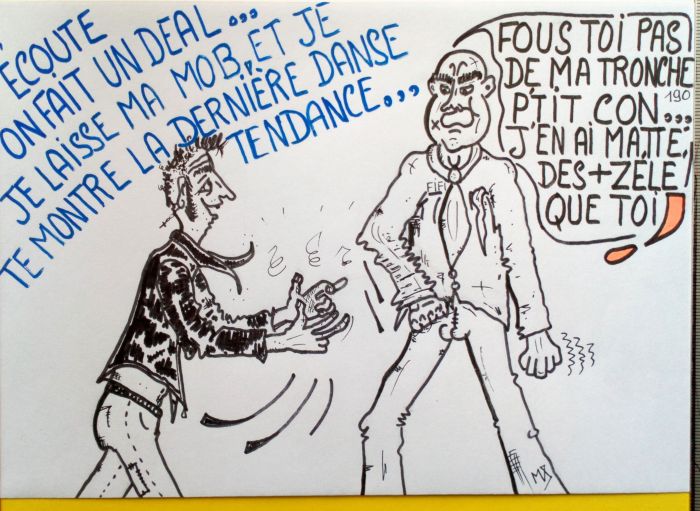 ECOUTE
ON FAIT UN DEAL...
JE LAISSE MA MOB, ET JE
TE MONTRE LA DERNIÈRE DANSE
TENDANCE...
FOUS TOI PAS
DE MA TRONCHE
190
P'TIT CON...
J'EN AI MATTÉ,
DES + ZELÉ
QUE TOI!
MX